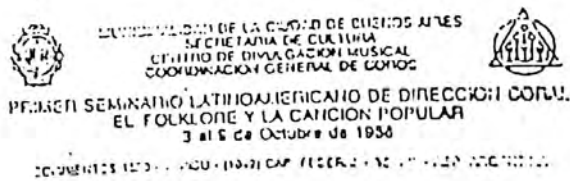 MUNICIPALIDAD DE LA CIUDAD DE BUENOS AIRES
SECRETARIA DE CULTURA
CENTRO DE DIVULGACION MUSICAL
COORDINACION GENERAL DE COROS
PRIMER SEMINARIO LATINOAMERICANO DE DIRECCION CORAL
EL FOLKLORE Y LA CANCION POPULAR
3 al de Octubre de
CAP. FEDERAL